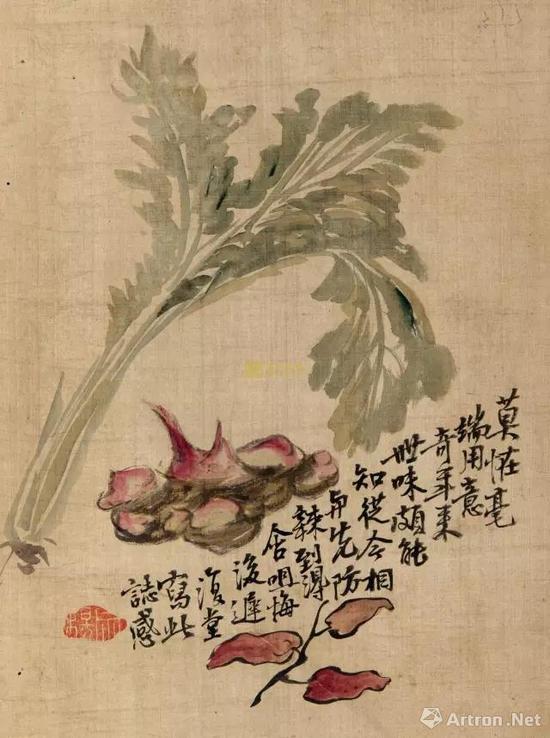 莫恠毫
端用意
奇年來
世味頗能
知從今相
與先防
辣到得
含咀悔
後遲
復堂
寫此
誌感
Artron.Net